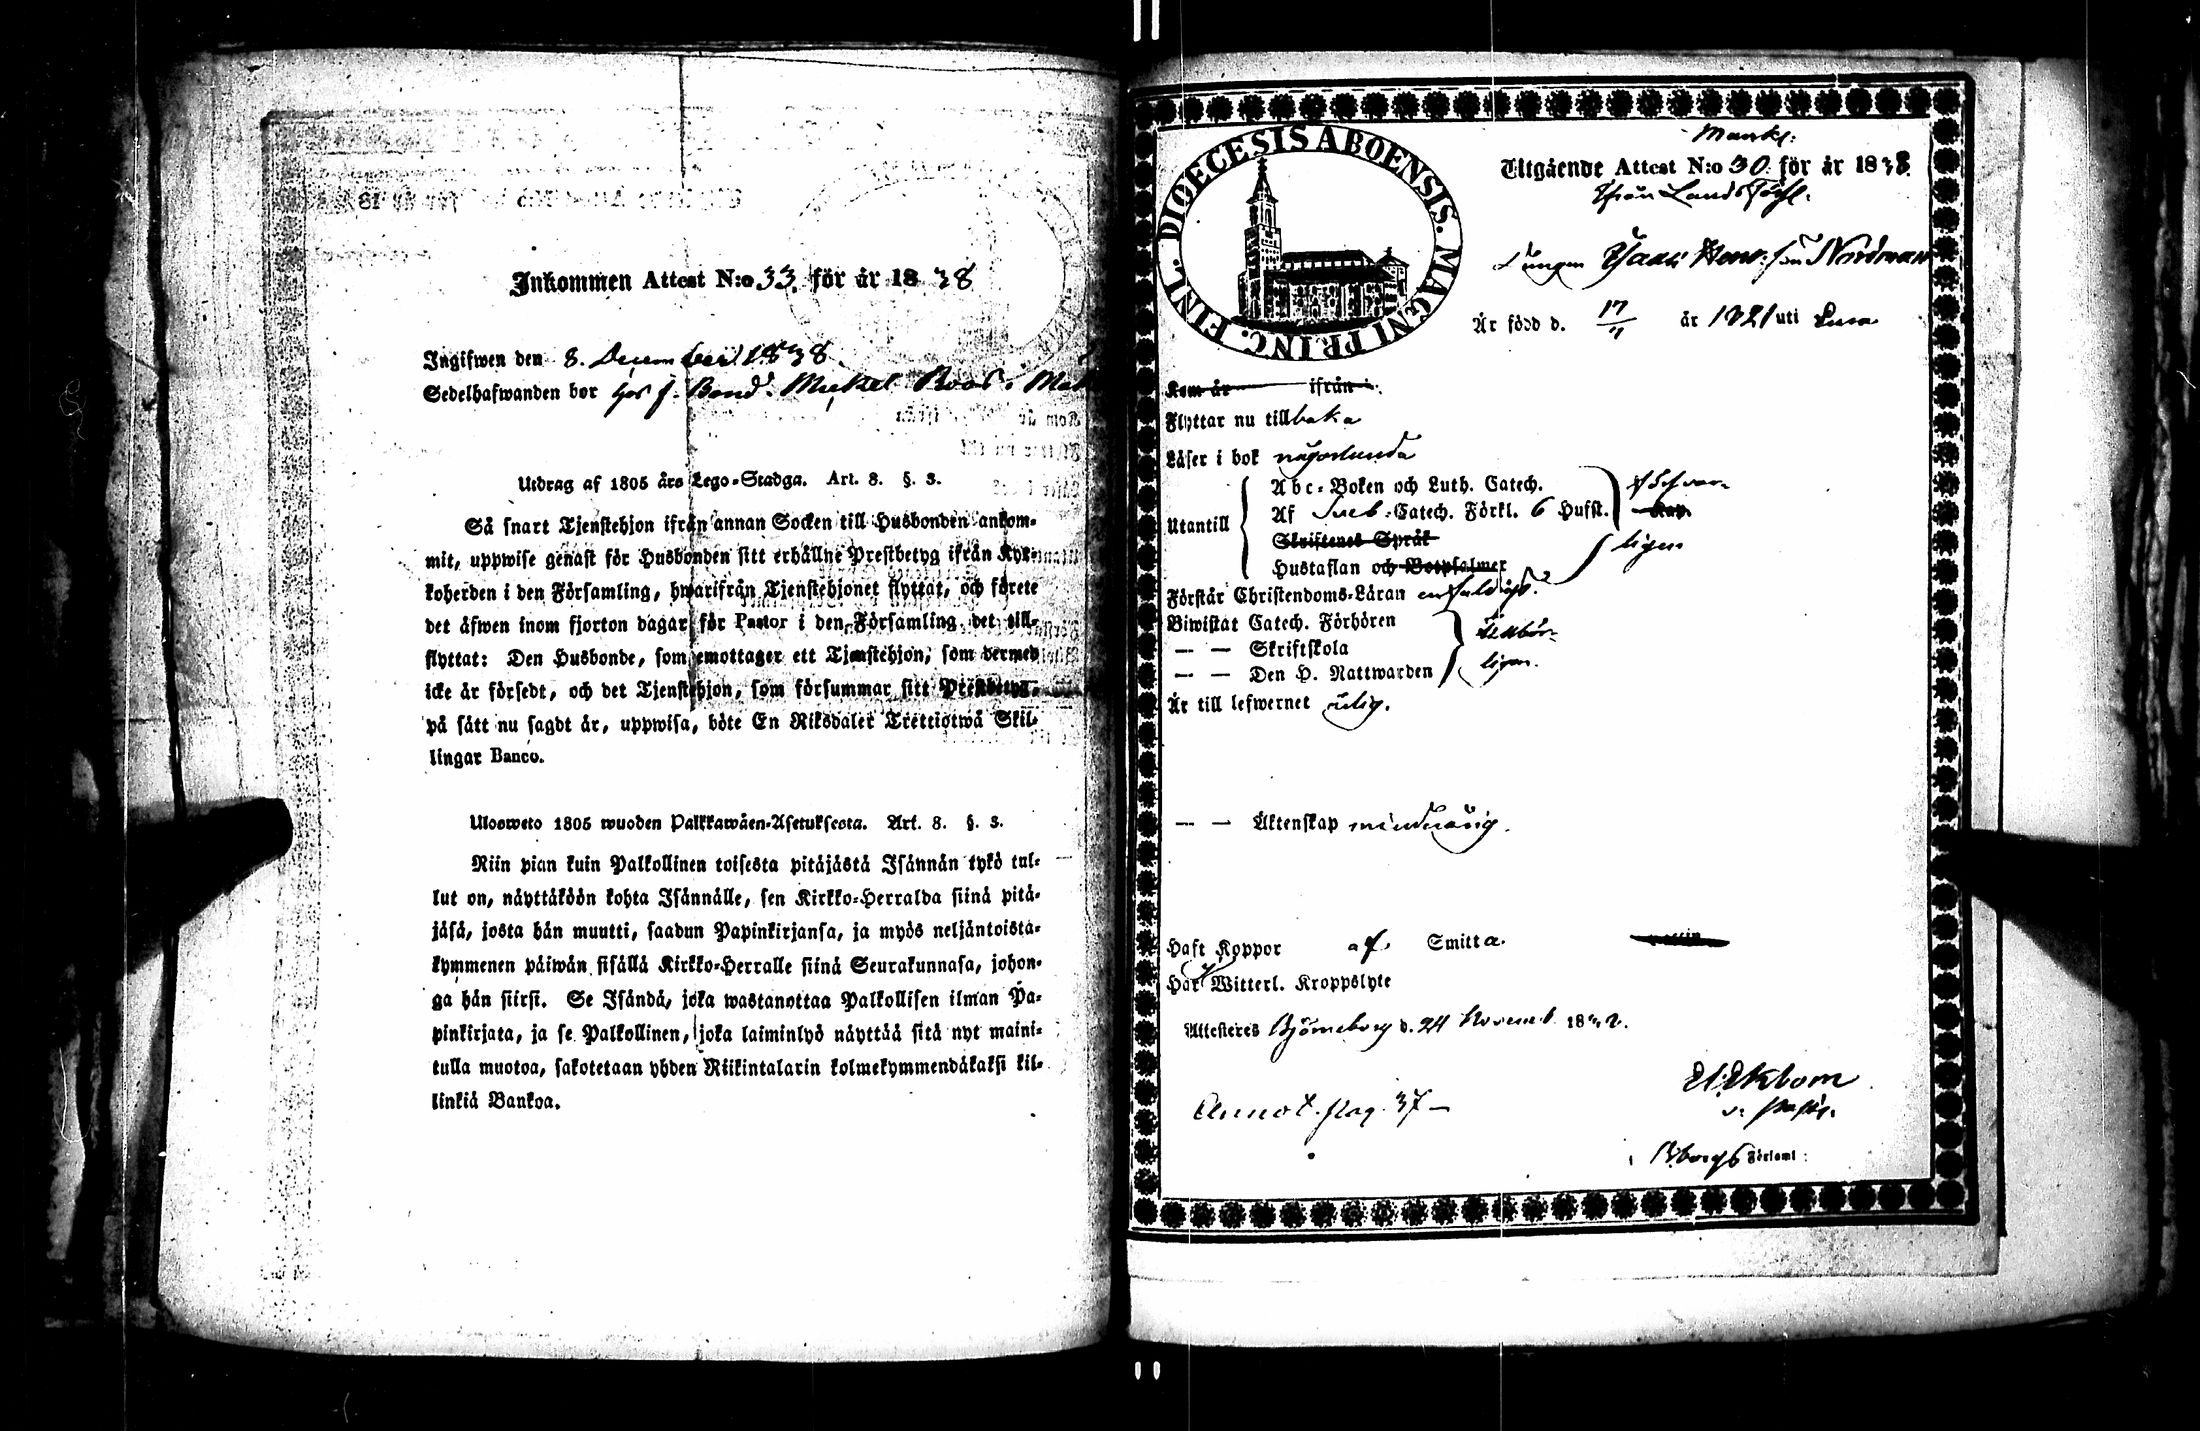 Inkommen Attest N:o 33. för år 1838
Ingifwen den 8. December 1838.
Sedelhafwanden bor hos f. Bond. Mickel Roos i
Utdrag af 1805 års Lego-Stadga. Art. 8. §. 3.
Så snart Tjenstehjon ifrån annan Socken till Husbonden ankom-
mit, uppwise genast för Husbonden sitt erhållne Prestbetyg ifrån Kyr-
koherden i den Församling, hwarifrån Tjenstehjonet flyttat, och förete
det äfwen inom fjorton dagar för Pastor i den Församling det till-
flyttat: Den Husbonde, som emottager ett Tjenstehjon, som dermed
icke är försedt, och det Tjenstehjon, som försummar sitt Prestbetyg,
på sätt nu sagdt är, uppwisa, böte En Riksdaler Trettiotwå Skil-
lingar Banco.
Ulosweto 1805 wuoden Palkkawäen-Asetuksesta. Art. 8. §. 3.
Niin pian kuin Palkollinen toisesta pitäjästä Isännän tykö tul-
lut on, näyttäköön kohta Isännälle, sen Kirkko-Herralda siinä pitä-
jäsä, josta hän muutti, saadun Papinkirjansa, ja myös neljäntoista-
kymmenen päiwän sisällä Kirkko-Herralle siinä Seurakunnasa, johon-
ga hän siirsi. Se Isändä, joka wastanottaa Palkollisen ilman Pa-
pinkirjata, ja se Palkollinen, joka laiminlyö näyttää sitä nyt maini-
tulla muotoa, sakotetaan yhden Riikintalarin kolmekymmendäkaksi kil-
linkiä Bankoa.
DIOECESIS ABOENSIS. MAGNI PRINC. FINL.
Mankl:
Utgående Attest N:o 30. för år 1838.
Ifrån Lands Förs.
Drängen Isaac Henr. son Nordman
Är född d. 17/11 år 1821 uti Eura
Kom år ifrån
Flyttar nu tillbaka
Läser i bok någorlunda
Utantill
Abc-Boken och Luth. Catech.
Af Sveb. Catech. Förkl. 6 Hufst.
Skriftenes Språk
Hustaflan och Botpsalmer
försvar-
ligen
Förstår Christendoms-Läran enfaldigt.
Biwistat Catech. Förhören
— — Skriftskola
— — Den H. Nattwarden
tillbör-
ligen.
Är till lefwernet ärlig.
— — Äktenskap minderårig.
Haft Koppor af Smitta.
Har Witterl. Kroppslyte
Attesteres Björneborg d. 24 Novemb. 1838.
Ekbom
v. Pastor.
Annot. pag. 37 —
i Bborgs Förfaml: